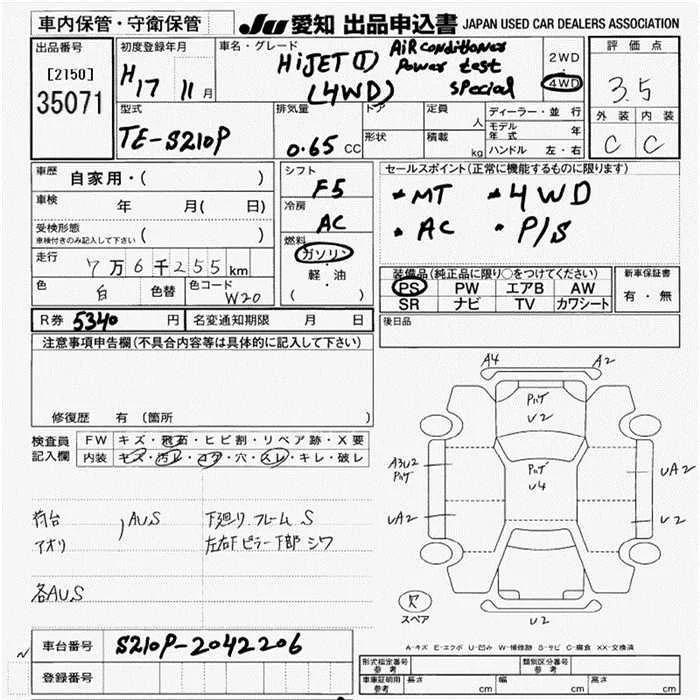 車内保管・守衛保管
JU 愛知 出品申込書 JAPAN USED CAR DEALERS ASSOCIATION
出品番号
[2150]
35071
初度登録年月
H17 11月
車名・グレード
HiJET ① Air conditioner
Power test
(4WD) special
2WD
4WD
評価点
3.5
外装 内装
C C
型式
TE-S210P
排気量
0.65 CC
ドア
形状
定員
人
積載
kg
ディーラー・並行
モデル年式 年
ハンドル 左・右
車歴
自家用・( )
車検
年 月( 日)
受検形態
車検付きのみ記入して下さい ( )
走行
7万6千255km
色
白
色替
色コード
W20
シフト
F5
冷房
AC
燃料
ガソリン
・
軽・油
( )
セールスポイント(正常に機能するものに限ります)
・MT ・4WD
・AC ・P/S
装備品(純正品に限り○をつけてください)
PS PW エアB AW
SR ナビ TV カワシート
新車保証書
有・無
R券 5340 円
名変通知期限 月 日
後日品
注意事項申告欄(不具合内容等は具体的に記入して下さい)
修復歴 有 (箇所
検査員記入欄
FW キズ・飛石・ヒビ割・リペア跡・X要
内装 キズ・汚レ・コゲ・穴・スレ・キレ・破レ
荷台
アオリ , AU.S
下廻り.フレーム S
左右F ピラー下部 シワ
各AU.S
A4 A2
U2
A3U2
U4
UA2
UA2
U2
U2
スペア
A-キズ E-エクボ U-凹み W-補修跡 S-サビ C-腐食 XX-交換済
車台番号 S210P-2042206
登録番号
形式指定番号 参考
類別区分番号 参考
車庫証明用 参考 長さ cm 幅 cm 高さ cm